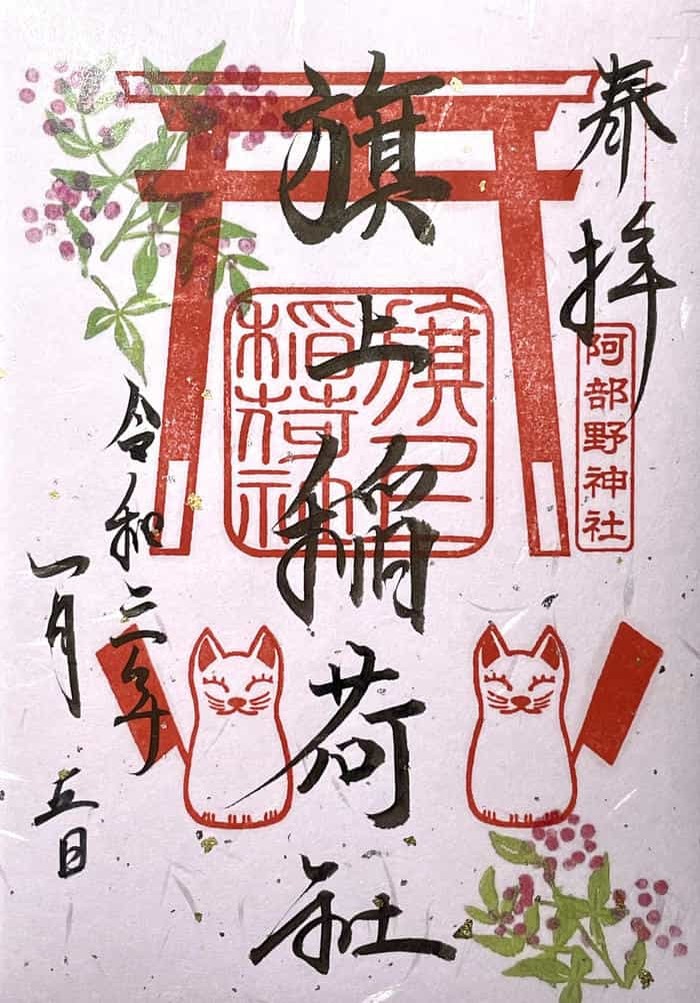 奉拝
阿部野神社
旗上稲荷社
旗上
稲荷神
令和三年
一月五日